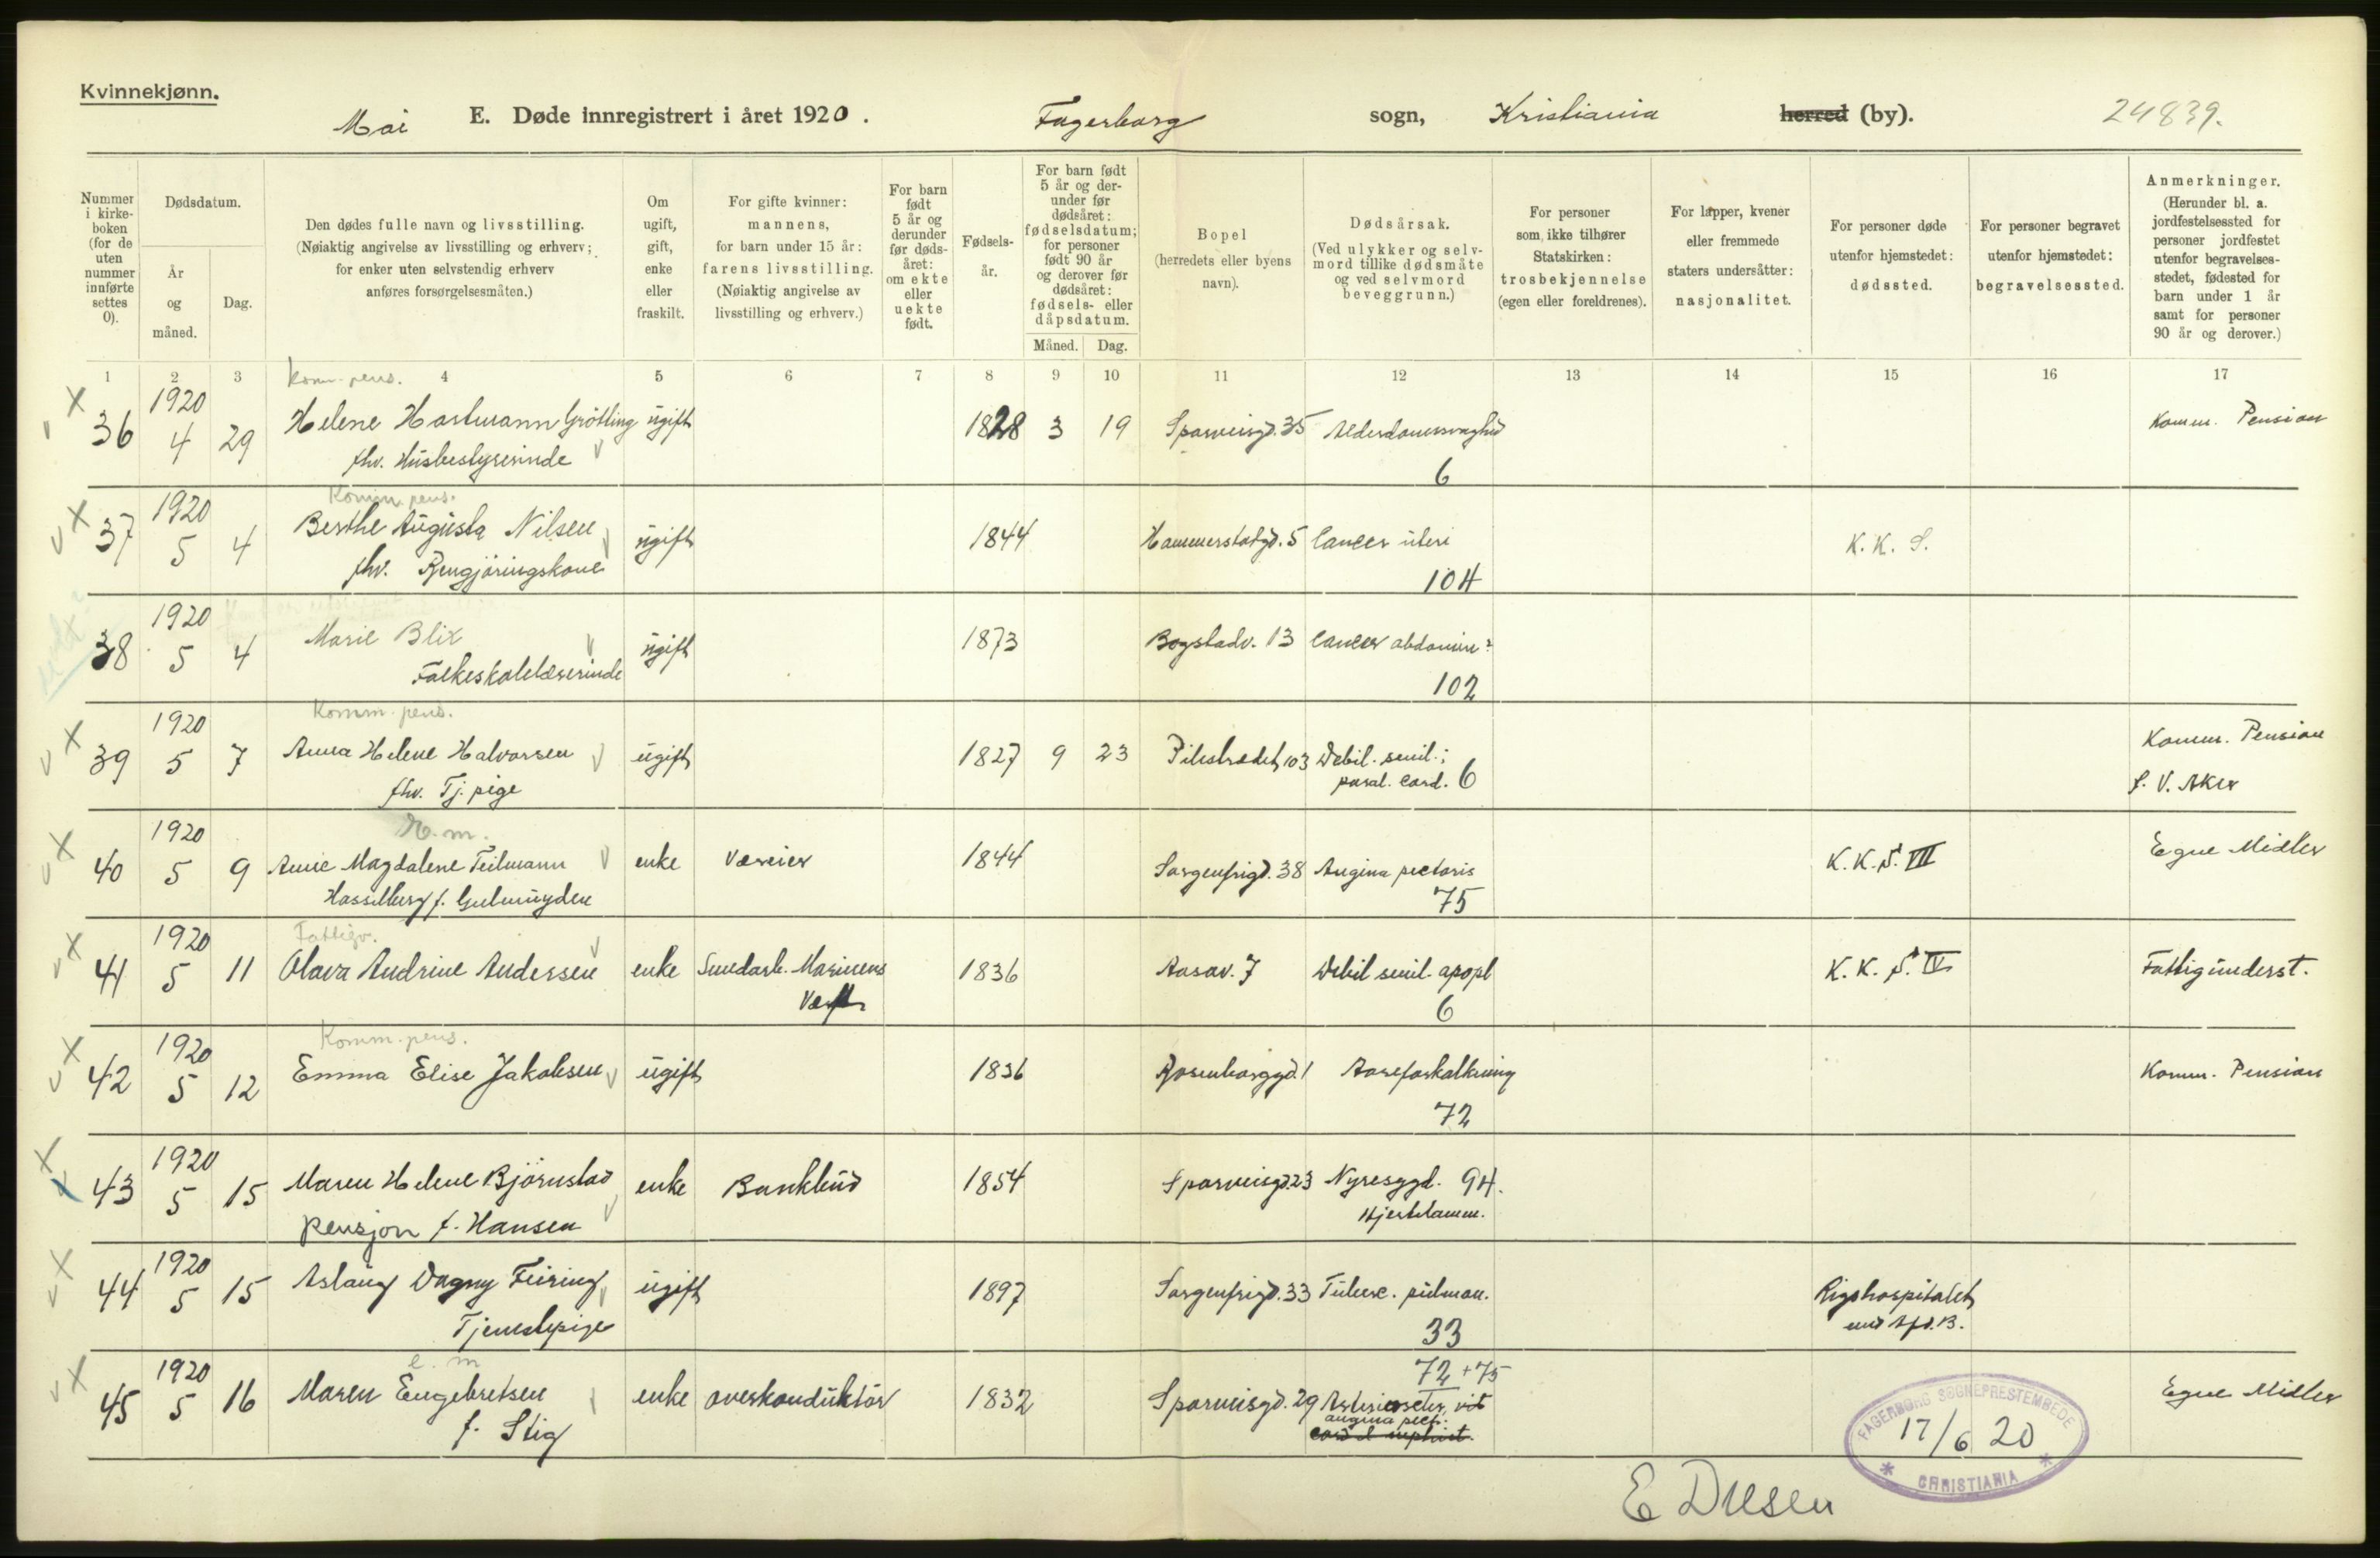 Kvinnekjønn.
Mai E. Døde innregistrert i året 1920. Fagerborg sogn, Kristiania herred (by). 24839.
Nummer i kirke- boken (for de uten nummer innførte settes 0).
Dødsdatum.
År og måned.
Dag.
Den dødes fulle navn og livsstilling.
(Nøiaktig angivelse av livsstilling og erhverv;
for enker uten selvstendig erhverv
anføres forsørgelsesmåten.)
Om ugift, gift, enke eller fraskilt.
For gifte kvinner:
mannens,
for barn under 15 år:
farens livsstilling.
(Nøiaktig angivelse av
livsstilling og erhverv.)
For barn født 5 år og derunder før døds- året: om ekte eller uekte født.
Fødsels- år.
For barn født 5 år og der- under før dødsåret: fødselsdatum; for personer født 90 år og derover før dødsåret: fødsels- eller dåpsdatum.
Måned. Dag.
Bopel
(herredets eller byens
navn).
Dødsårsak.
(Ved ulykker og selv-
mord tillike dødsmåte
og ved selvmord
beveggrunn.)
For personer
som ikke tilhører
Statskirken:
trosbekjennelse
(egen eller foreldrenes).
For lapper, kvener
eller fremmede
staters undersåtter:
nasjonalitet.
For personer døde
utenfor hjemstedet:
dødssted.
For personer begravet
utenfor hjemstedet:
begravelsessted.
Anmerkninger.
(Herunder bl. a.
jordfestelsessted for
personer jordfestet
utenfor begravelses-
stedet, fødested for
barn under 1 år
samt for personer
90 år og derover.)
1 2 3 4 5 6 7 8 9 10 11 12 13 14 15 16 17
Komm. pens.
36 1920 4 29 Helene Hartmann Grøtling ugift 1828 3 19 Sporveisgd. 35 Alderdomssvaghed Komm. Pension
fhv. Husbestyrerinde 6
Komm. pens.
37 1920 5 4 Berthe Augusta Nilsen ugift 1844 Hammerstadgd. 5 Cancer uteri K. K. S.
fhv. Rengjøringskone 104
38 1920 5 4 Marie Blix ugift 1873 Bogstadv. 13 Cancer abdomin ?
Folkeskolelærerinde 102
Komm. pens.
39 1920 5 7 Anna Helene Halvorsen ugift 1827 9 23 Pilestrædet 103 Debil. senil.; Komm. Pension
fhv. Tj. pige paral. card. 6 f. V. Aker
E. m.
40 1920 5 9 Anne Magdalene Teilmann enke Væreier 1844 Sorgenfrigd. 38 Angina pectoris K. K. S. VII Egne Midler
Hasselberg f. Gulmuyden 75
Fattigv.
41 1920 5 11 Olava Andrine Andersen enke Smedarb. Marinens 1836 Aasav. 7 Debil senil apopl K. K. S. IV Fattigunderst.
Verft 6
Komm. pens.
42 1920 5 12 Emma Elise Jakobsen ugift 1836 Rosenborggd. 1 Aareforkalkning Komm. Pension
72
43 1920 5 15 Maren Helene Bjørnstad enke Bankbud 1854 Sporveisgd. 23 Nyresygd. 94.
pensjon f. Hansen Hjertelamm.
44 1920 5 15 Aslaug Dagny Feiring ugift 1897 Sorgenfrigd. 33 Tuberc. pulmon. Rigshospitalet
Tjenestepige 33 med Afd. B.
e. m 72 + 75
45 1920 5 16 Maren Engebretsen enke overkonduktør 1832 Sporveisgd. 29 Arterioscler. vit Egne Midler
f. Stig angina pect.
FAGERBORG SOGNEPRESTEMBEDE
17/6 20
* CHRISTIANIA *